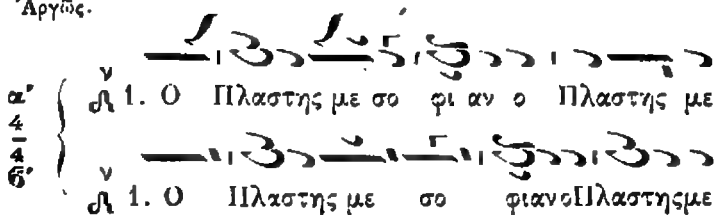 Ἀργῶς.
α' ν 1. Ο Πλαστης με σο φι αν ο Πλαστης με
4
4
β' ν 1. Ο Πλαστης με σο φιανοΠλαστηςμε